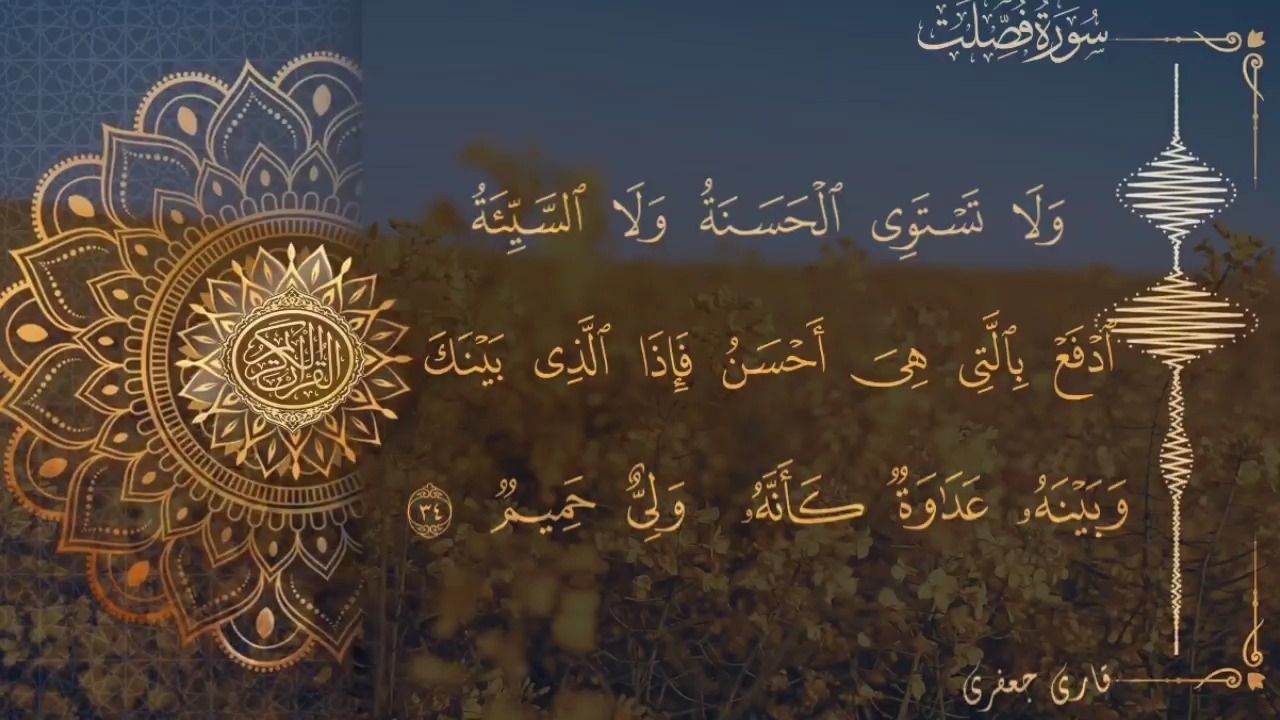 سُورَةُ فُصِّلَتْ
وَلَا تَسْتَوِى ٱلْحَسَنَةُ وَلَا ٱلسَّيِّئَةُ
ٱدْفَعْ بِٱلَّتِى هِىَ أَحْسَنُ فَإِذَا ٱلَّذِى بَيْنَكَ
وَبَيْنَهُۥ عَدَٰوَةٌ كَأَنَّهُۥ وَلِىٌّ حَمِيمٌ ٣٤
القرآن الكريم
قارى جعفرى